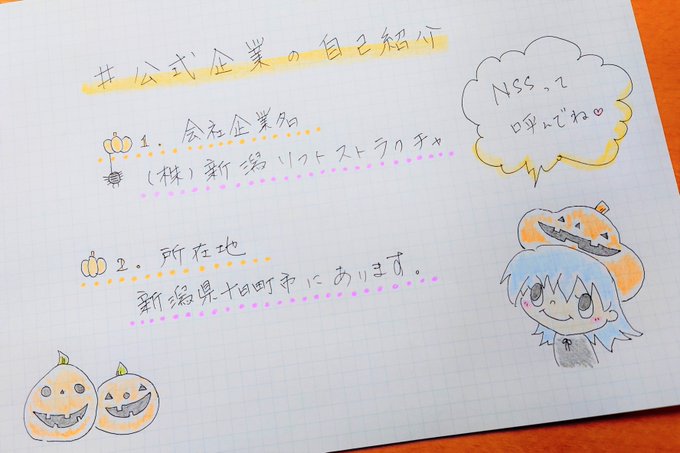 #公式企業の自己紹介
NSSって
呼んでね♡
1. 会社企業名
(株)新潟ソフトストラクチャ
2. 所在地
新潟県十日町市にあります。